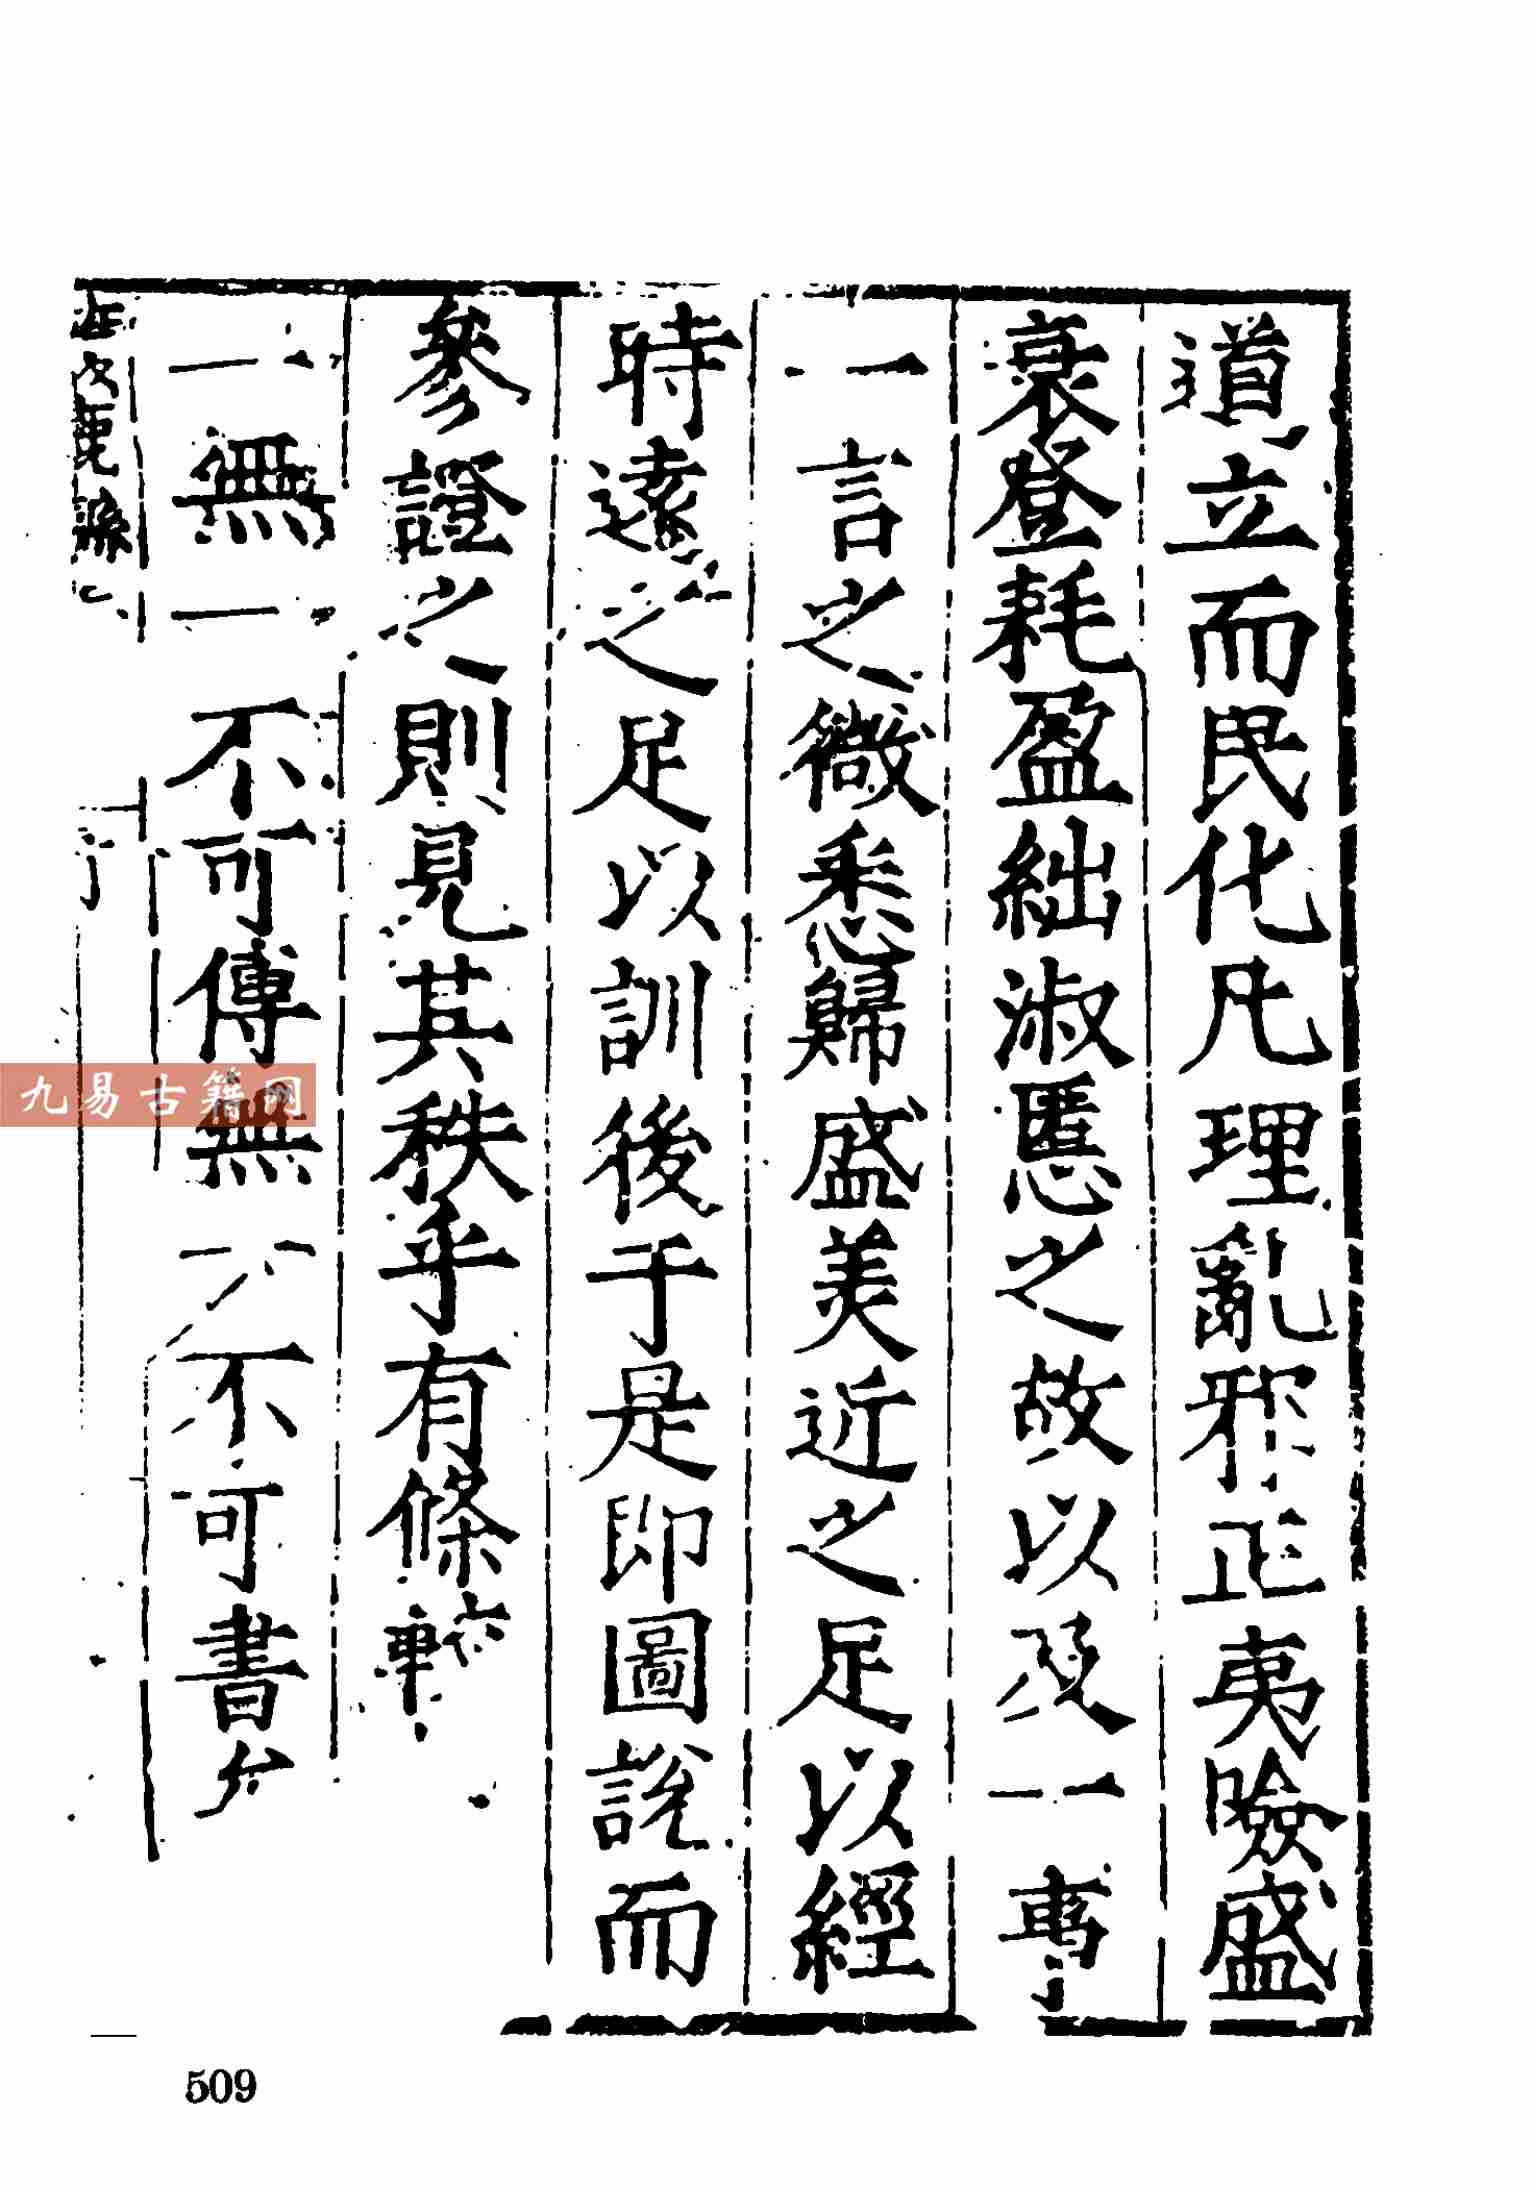 道立而民化凡理亂邪正夷險盛
衰登耗盈絀淑慝之故以及一事
一言之微悉歸盛美近之足以經
時遠之足以訓後于是即圖說而
參證之則見其秩乎有條
無一不可傳無一不可書
九易古籍网
509